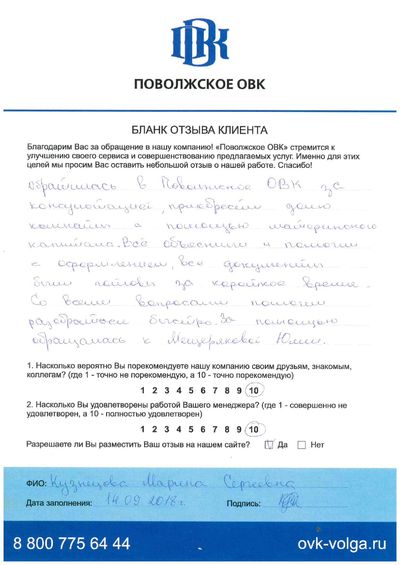 ПОВОЛЖСКОЕ ОВК
БЛАНК ОТЗЫВА КЛИЕНТА
Благодарим Вас за обращение в нашу компанию! «Поволжское ОВК» стремится к
улучшению своего сервиса и совершенствованию предлагаемых услуг. Именно для этих
целей мы просим Вас оставить небольшой отзыв о нашей работе. Спасибо!
обратилась в Поволжское ОВК за
консультацией, приобретали долю
комнаты с помощью материнского
капитала. Всё объяснили и помогли
с оформлением, все документы
были готовы за короткое время.
Со всеми вопросами помогли
разобраться быстро. За помощью
обращалась к Мещеряковой Юлии.
1. Насколько вероятно Вы порекомендуете нашу компанию своим друзьям, знакомым,
коллегам? (где 1 - точно не порекомендую, а 10 - точно порекомендую)
1 2 3 4 5 6 7 8 9 10
2. Насколько Вы удовлетворены работой Вашего менеджера? (где 1 - совершенно не
удовлетворен, а 10 - полностью удовлетворен)
1 2 3 4 5 6 7 8 9 10
Разрешаете ли Вы разместить Ваш отзыв на нашем сайте? Да Нет
ФИО: Кузнецова Марина Сергеевна
Дата заполнения: 14.09.2018г. Подпись:
8 800 775 64 44 ovk-volga.ru